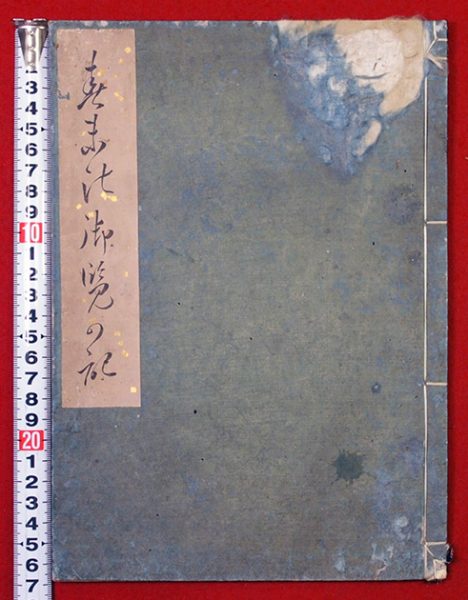 御覧の記
2
3
4
5
6
7
8
9
10
1
2
3
4
5
6
7
8
9
20
1
2
3
4
5
6
7